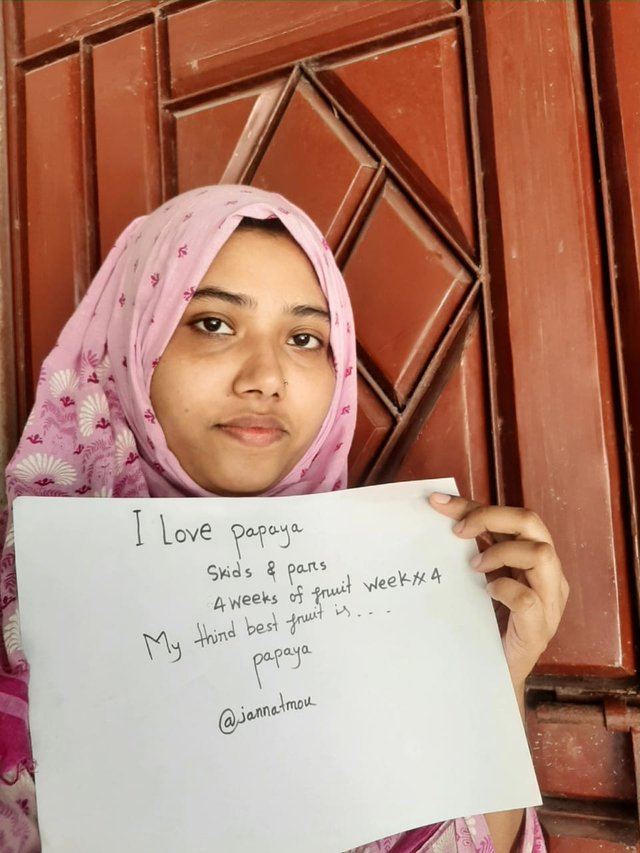 I Love papaya
Skids & pans
4 weeks of fruit week## 4
My third best fruit is....
papaya
@jannatmou